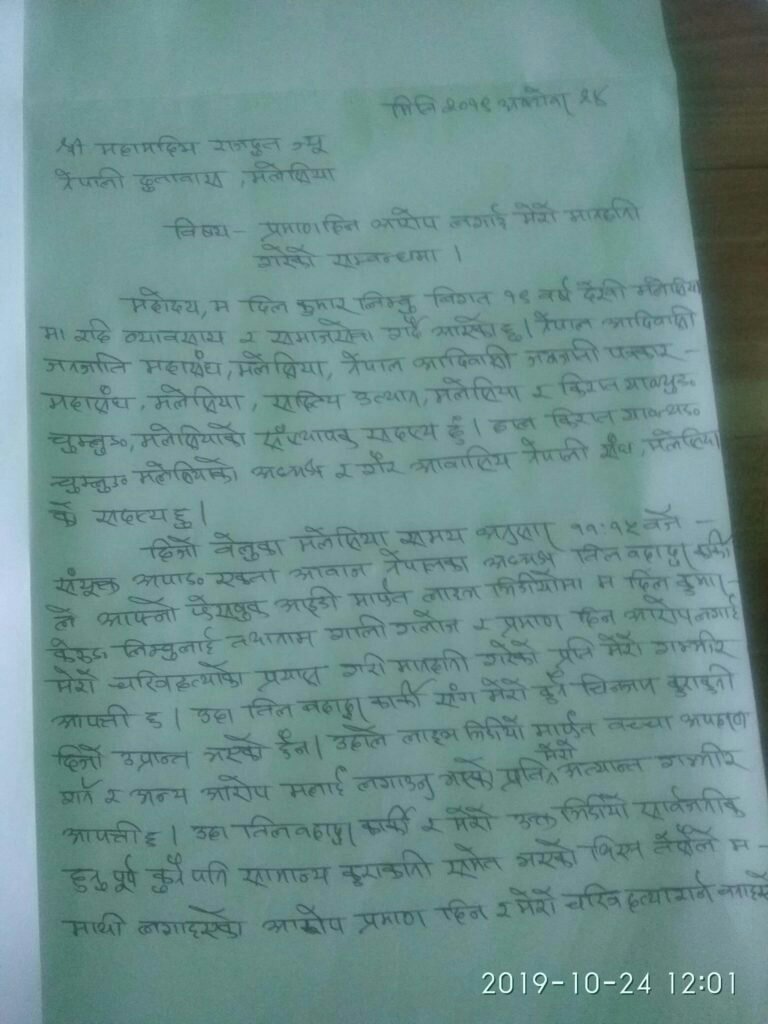 मिति २०१९ अक्टोबर २४
श्री महामहिम राजदुत ज्यू
नेपाली दुतावास, मलेसिया
विषय - प्रमाण हिन आरोप लगाई मेरो मानहानी
गरेको सम्बन्धमा ।
महोदय, म दिल कुमार लिम्बु विगत १९ वर्ष देखी मलेसिया
मा रही व्यावसाय र समाजसेवा गर्दै आएको छु । नेपाल आदिवासी
जनजाति महासंघ, मलेसिया, नेपाल आदिवासी जनजाती पत्रकार -
महासंघ, मलेसिया, उत्थान, मलेसिया र किरात याक्थुङ
चुम्लुङ, मलेसियाको संस्थापक सदस्य हुँ । हाल किरात याक्थुङ
चुम्लुङ मलेसियाको अध्यक्ष र गैर आवासिय नेपाली संघ, मलेसिया
के सदस्य छु ।
हिजो बेलुका मलेसिया समय अनुसार ११:१५ बजे -
संयुक्त अपाङ्ग एकता आवाज नेपालका अध्यक्ष तिल बहादुर कार्की
ले आफ्नो फेसबुक आईडी मार्फत लाइभ भिडीयोमा म दिल कुमार
लिम्बुलाई नथानाम गाली गलौज र प्रमाण हिन आरोप लगाई
मेरो चरित्र हत्याको प्रयास गरी मानहानी गरेको प्रति मेरो गम्भीर
आपत्ती छ । उहा तिल बहादुर कार्की संग मेरो कुनै चिनजान कुराकानी
हिजो उप्रान्त भएको छैन । उहाँले लाइभ भिडीयो मार्फत बच्चा अपहरण
गर्ने र अन्य आरोप मलाई लगाउनु भएको प्रति मेरो अत्यान्त गम्भीर
आपत्ती छ । उहा तिल बहादुर कार्की र मेरो उक्त भिडीयो सार्वजनीक
हुनु पूर्व कुनै पनि सामान्य कुराकानी समेत भएको थिएन तैपनि म -
माथी लगाइएको आरोप प्रमाण हिन र मेरो चरित्र हत्या गर्न
2019-10-24 12:01